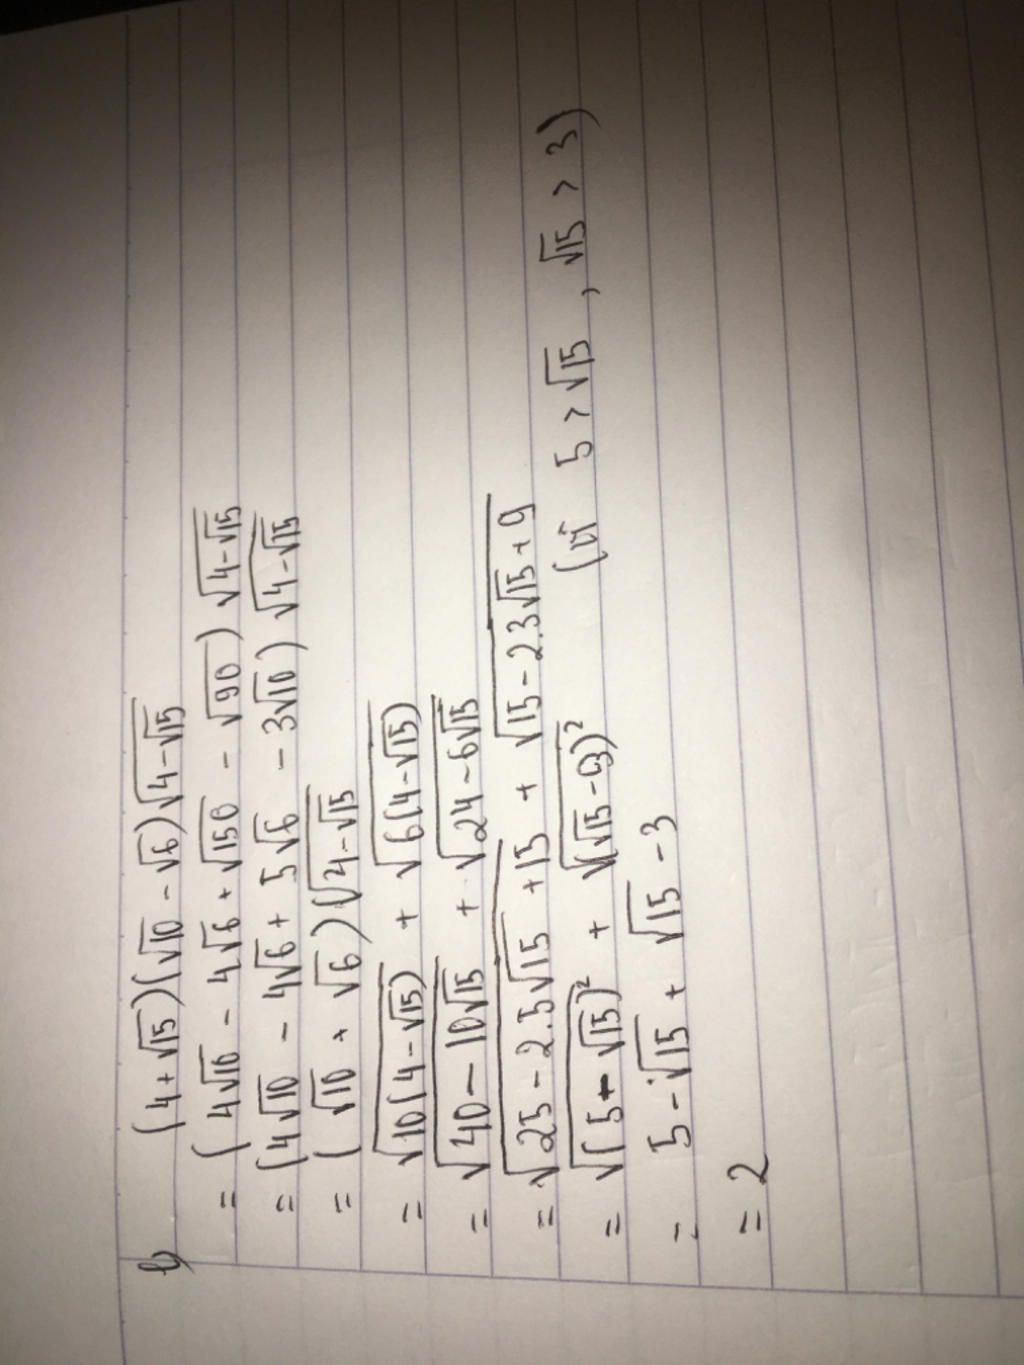 b (4+√15)(√10 - √6)√(4-√15)
= (4√10 - 4√6 + √150 - √90)√(4-√15)
= (4√10 - 4√6 + 5√6 - 3√10)√(4-√15)
= (√10 + √6)(√(4-√15)
= √(10(4-√15)) + √(6(4-√15))
= √(40-10√15) + √(24-6√15)
= √(25-2.5√15+15) + √(15-2.3√15+9)
= √((5-√15)²) + √((√15-3)²) (vì 5 > √15, √15 > 3)
= 5-√15 + √15 -3
= 2